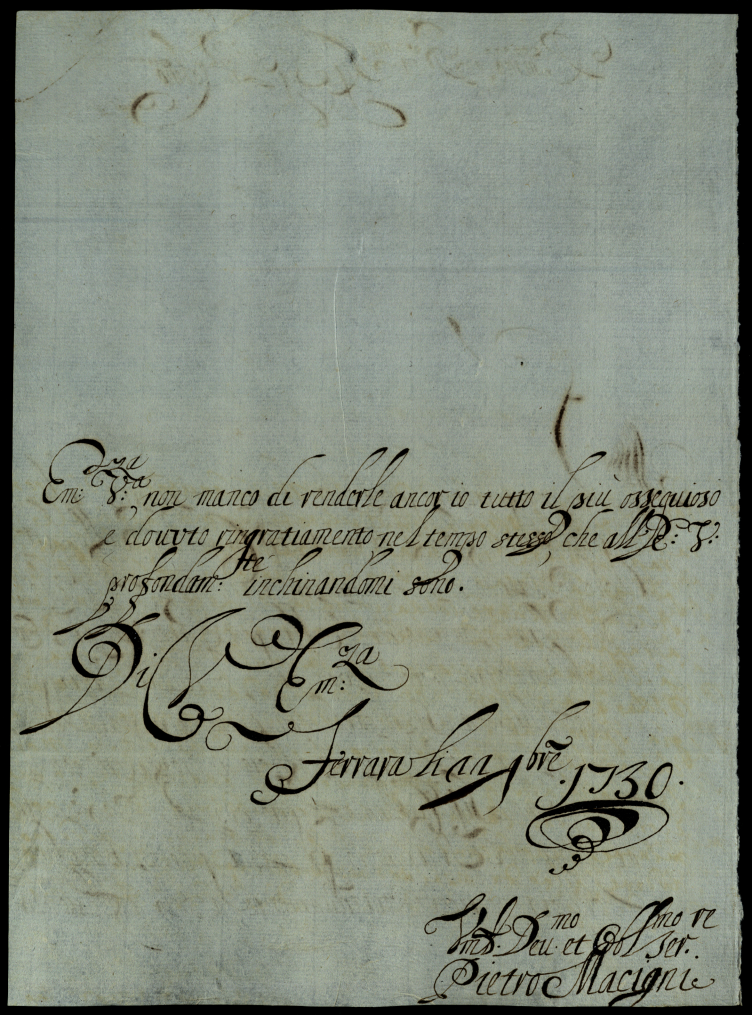 Em:za V:ra non manco di renderle ancor io tutto il più ossequioso
e douuto ringratiamento nel tempo stesso, che all' V:
profondam:te inchinandomi sono.
Di V Em:za
Ferrara li bre 1730.
Vmo. Deu.mo et Obl.mo Ser.re
Pietro Macigni